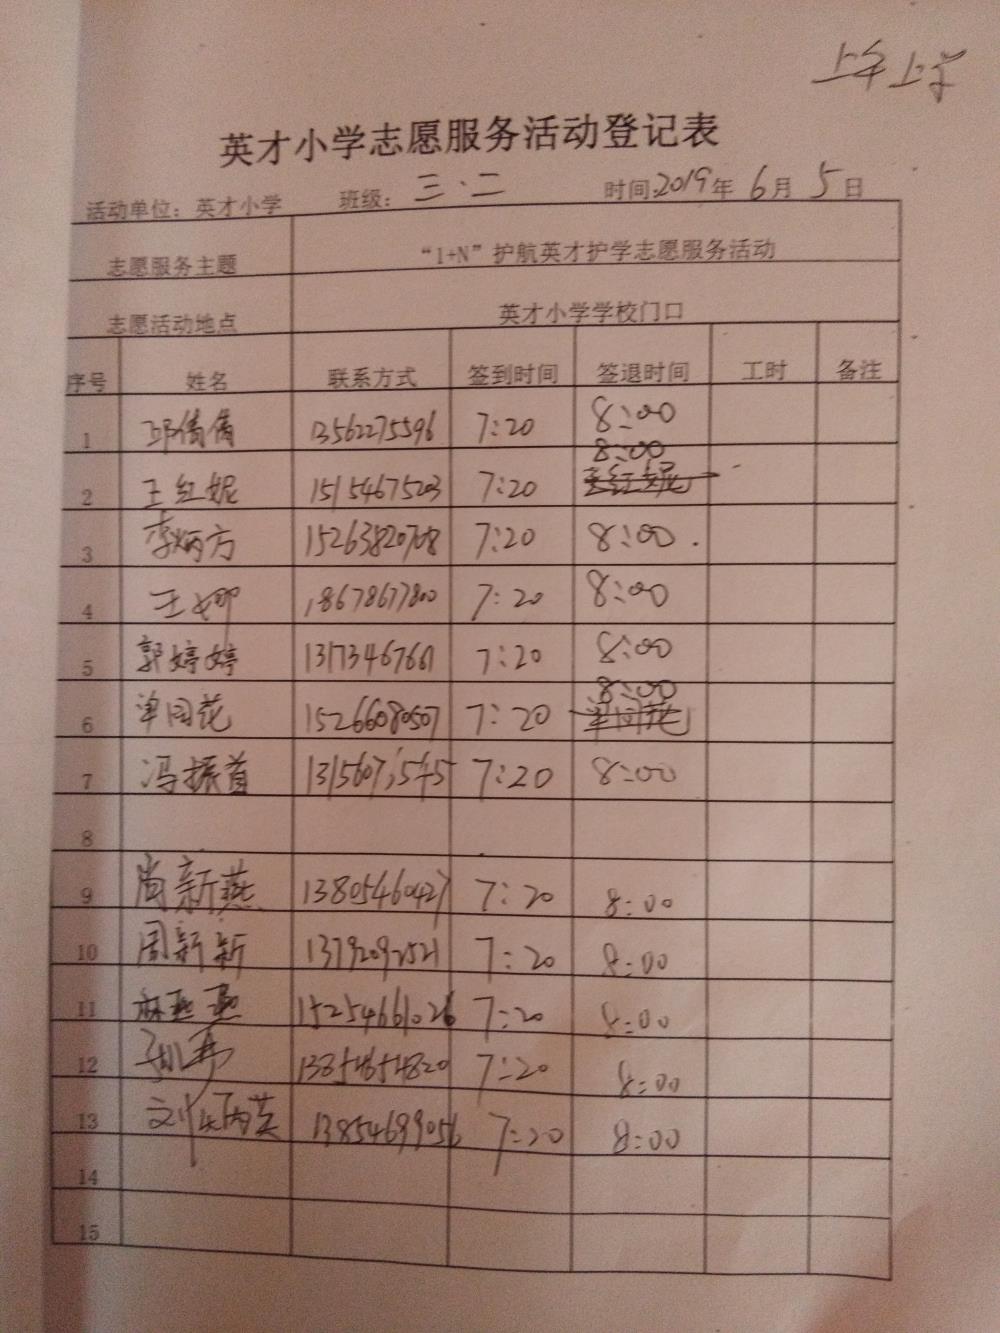 上午上学
英才小学志愿服务活动登记表
活动单位：英才小学 班级：三.二 时间:2019年6月5日
志愿服务主题 “1+N”护航英才护学志愿服务活动
志愿活动地点 英才小学学校门口
序号 姓名 联系方式 签到时间 签退时间 工时 备注
1 邱倩倩 13562275596 7:20 8:00
8:00
2 王红妮 15154675203 7:20 王红妮
3 李炳方 15263820708 7:20 8:00.
4 王娜 18678677800 7:20 8:00
5 郭婷婷 13173467661 7:20 8:00
8:00
6 单同花 15266080507 7:20 单同花
7 冯振首 7:20 8:00
8
9 尚新燕 13805460427 7:20 8:00
10 周新新 13792092521 7:20 8:00
11 15254661026 7:20 8:00
12 13854654820 7:20 8:00
13 刘炳英 13854699056 7:20 8:00
14
15